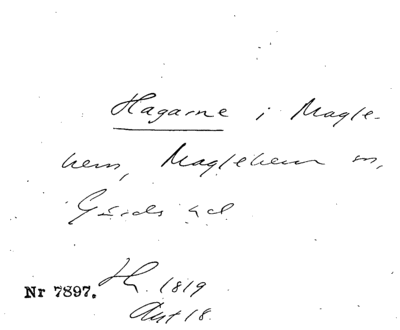 Hagarne i Magle-
hem, Maglehem sn,
Gärds hd
Nr 7897. Hh. 1819
Akt 18.